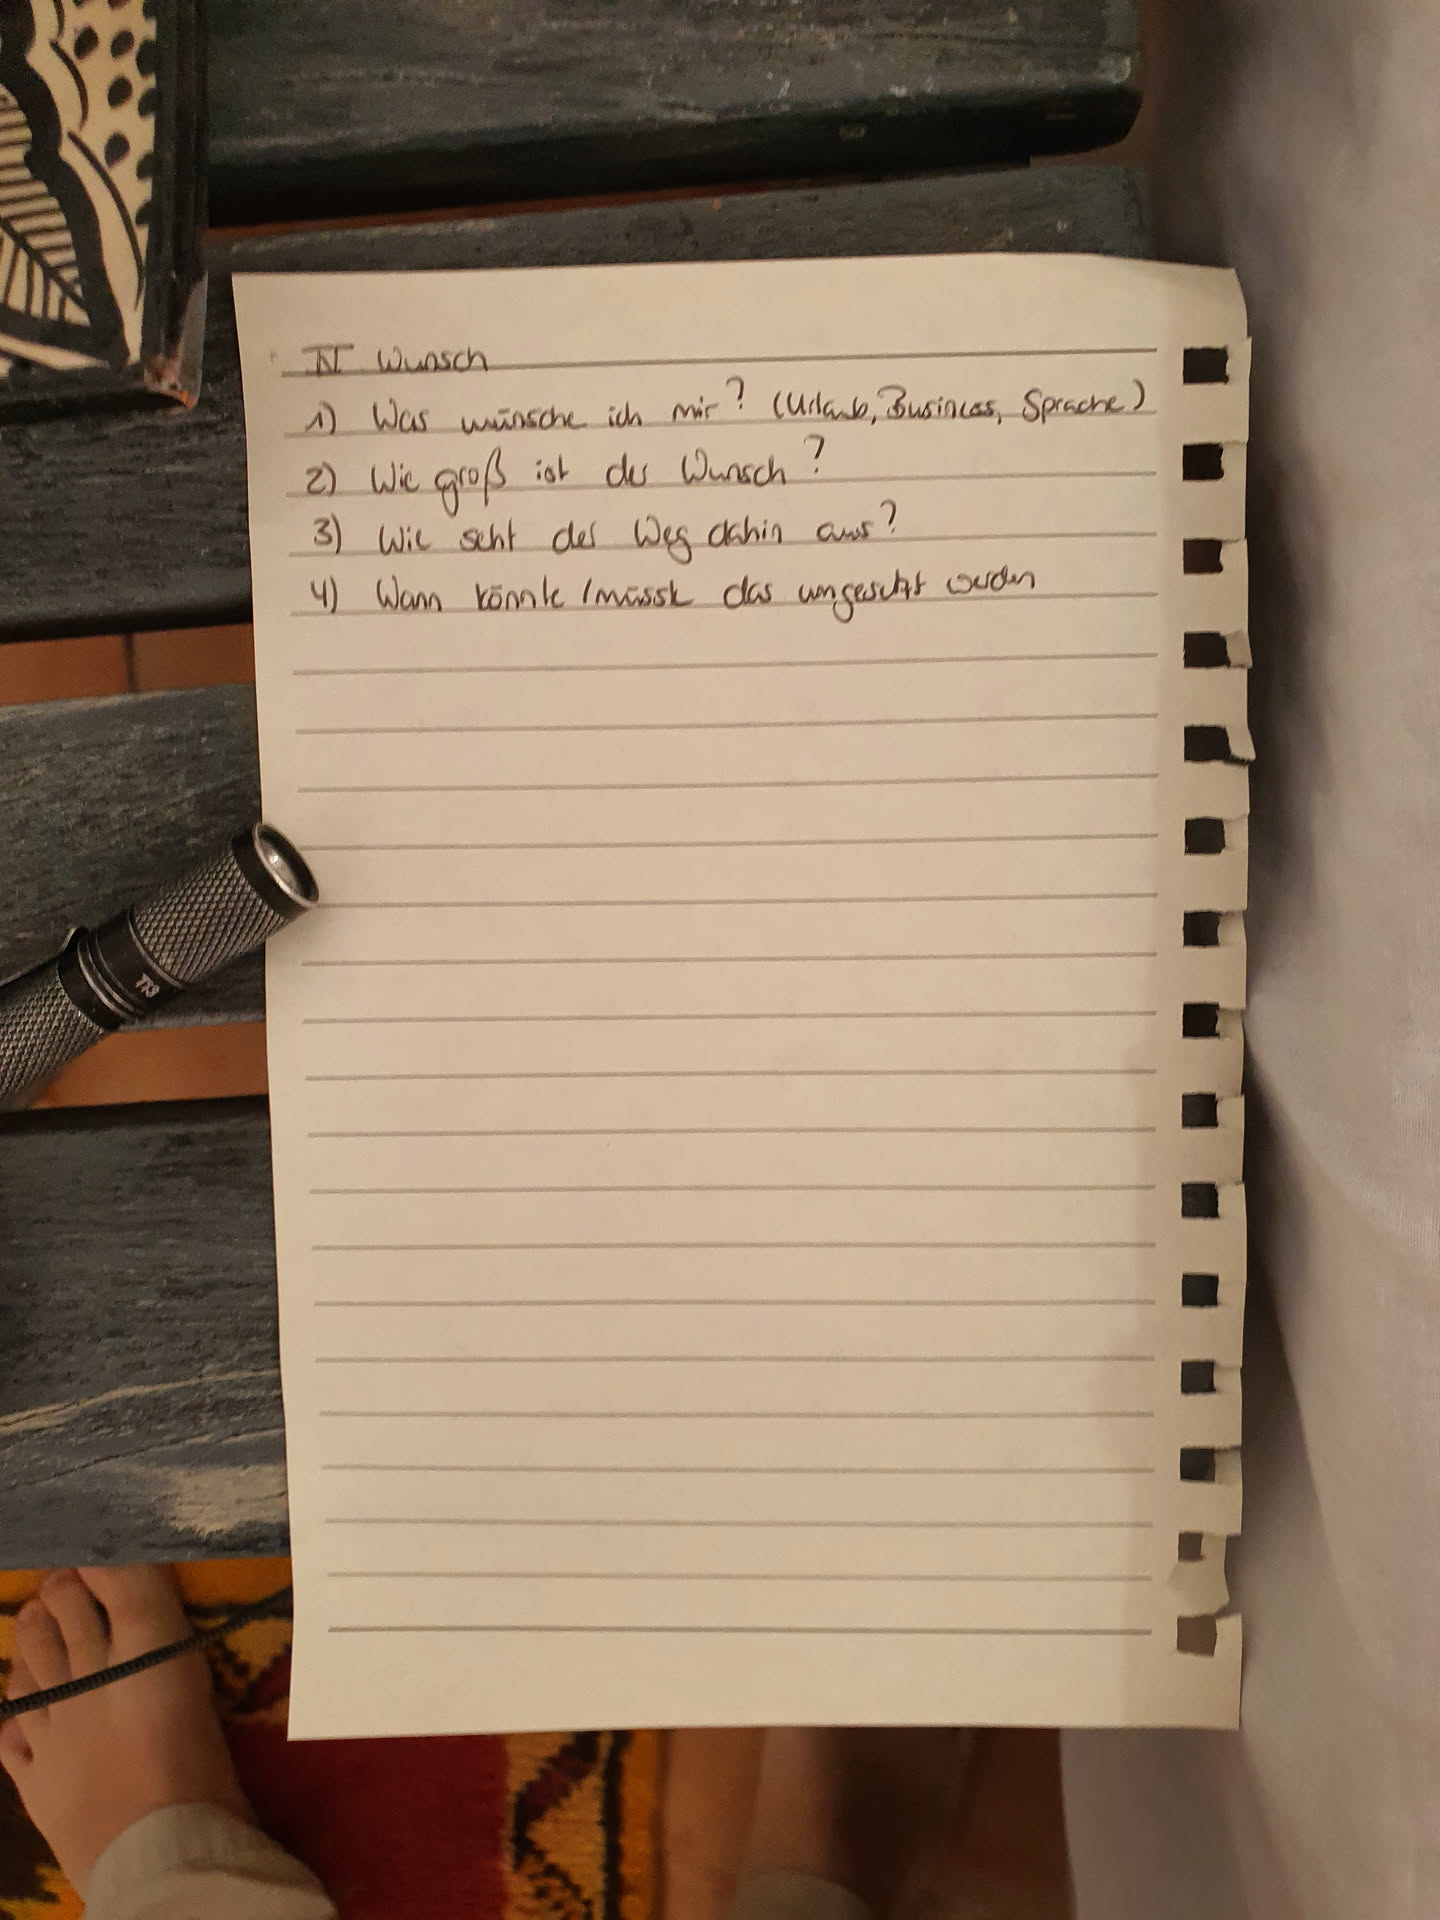 IV Wunsch
1) Was wünsche ich mir? (Urlaub, Business, Sprache)
2) Wie groß ist der Wunsch?
3) Wie seht der Weg dahin aus?
4) Wann könnte /müsste das umgesetzt werden